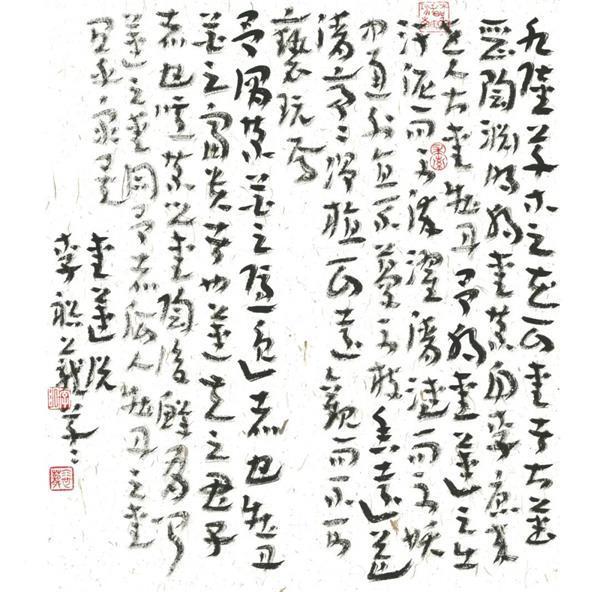 水陸草木之花可愛者甚蕃
晉陶淵明獨愛菊自李唐來
世人大愛牡丹予獨愛蓮之出
淤泥而不染濯清漣而不妖
中通外直不蔓不枝香遠益
清亭〻淨植可遠觀而不可
褻玩焉
予謂菊花之隱逸者也牡丹
花之富貴者也蓮花之君子
者也噫菊之愛陶後鮮有聞
蓮之愛同予者何人牡丹之愛
宜乎眾矣
愛蓮說
李